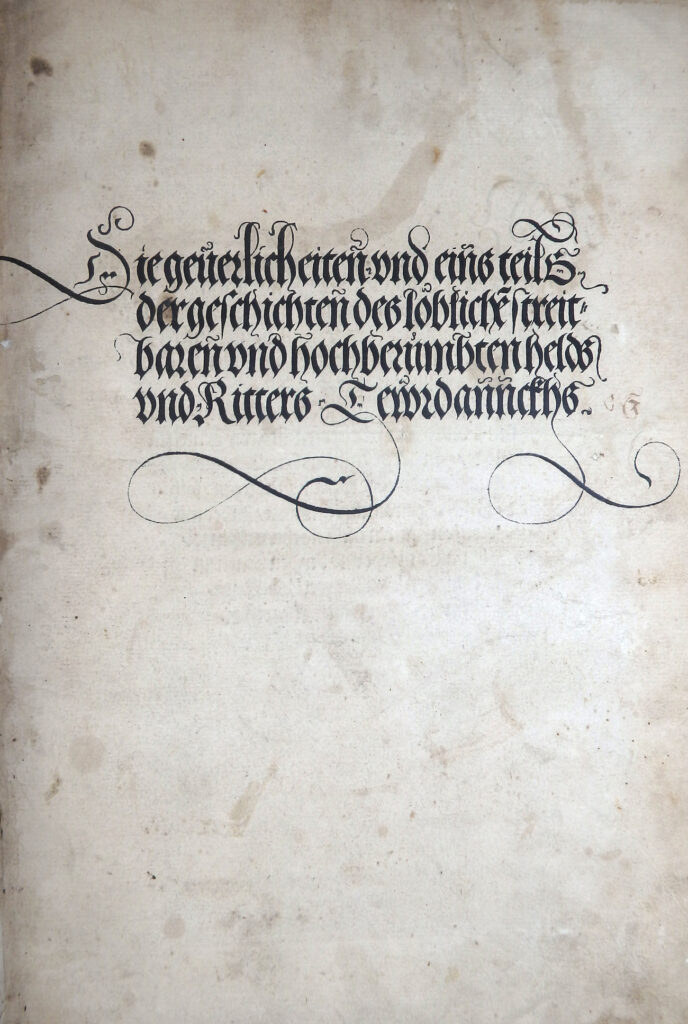 Die geũerlicheiteñ vnd eiñs teils
der geschichteñ des loͤblichẽ streit⸗
bareñ vnd hochberuͤmbten helds
vnd Ritters Tewrdañnckhs.